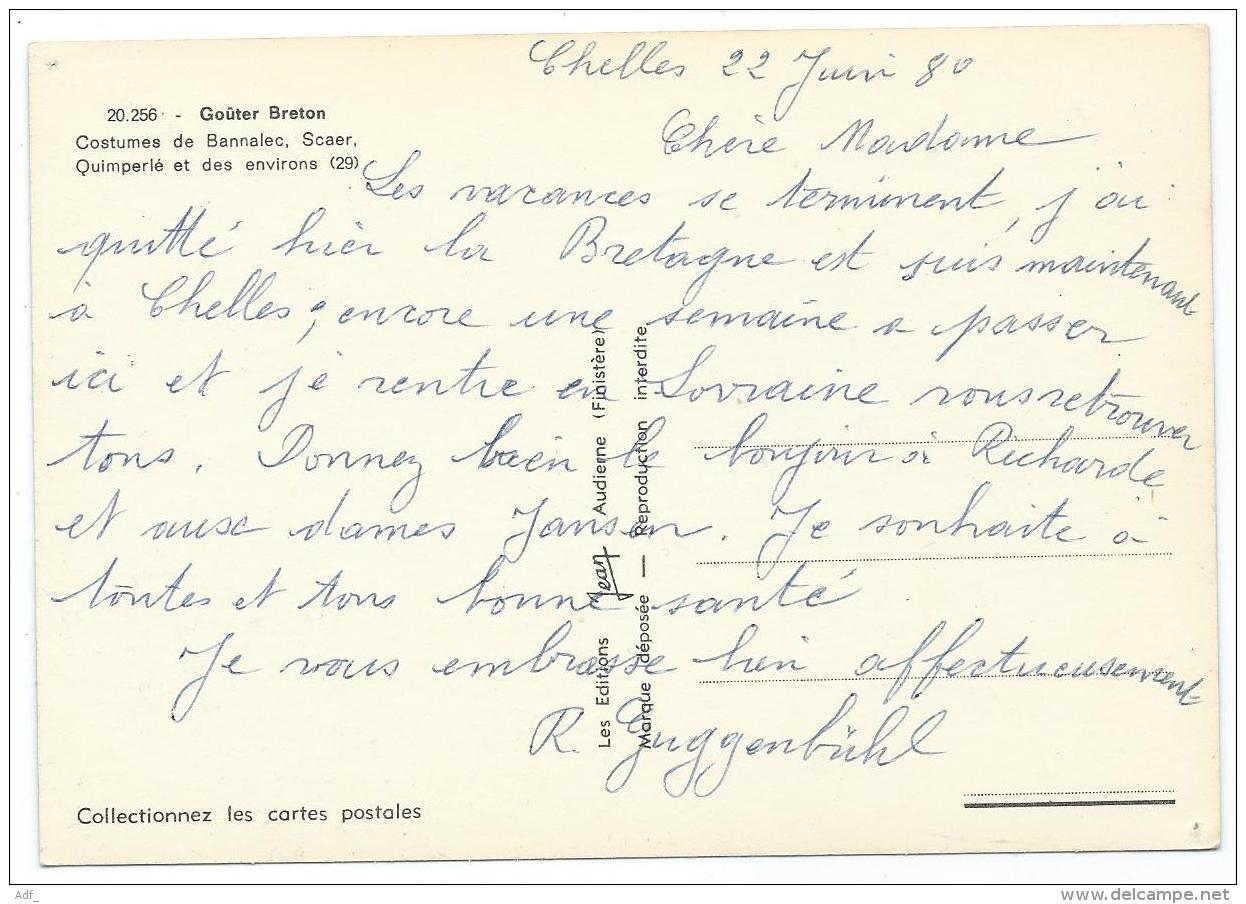 Chelles 22 Juin 80
20.256 - Goûter Breton
Costumes de Bannalec, Scaer,
Quimperlé et des environs (29)
Chère Madame
Les vacances se terminent, j'ai
quitté hier la Bretagne et suis maintenant
à Chelles ; encore une semaine a passer
ici et je rentre en Lorraine vous retrouver
tous. Donnez bien le bonjour à Richarde
et aux dames Jansen. Je souhaite à
toutes et tous bonne santé
Je vous embrasse bien affectueusement
R. Guggenbühl
Les Editions Jean Audierne (Finistère)
Marque déposée — Reproduction interdite
Collectionnez les cartes postales
Adf_
www.delcampe.net